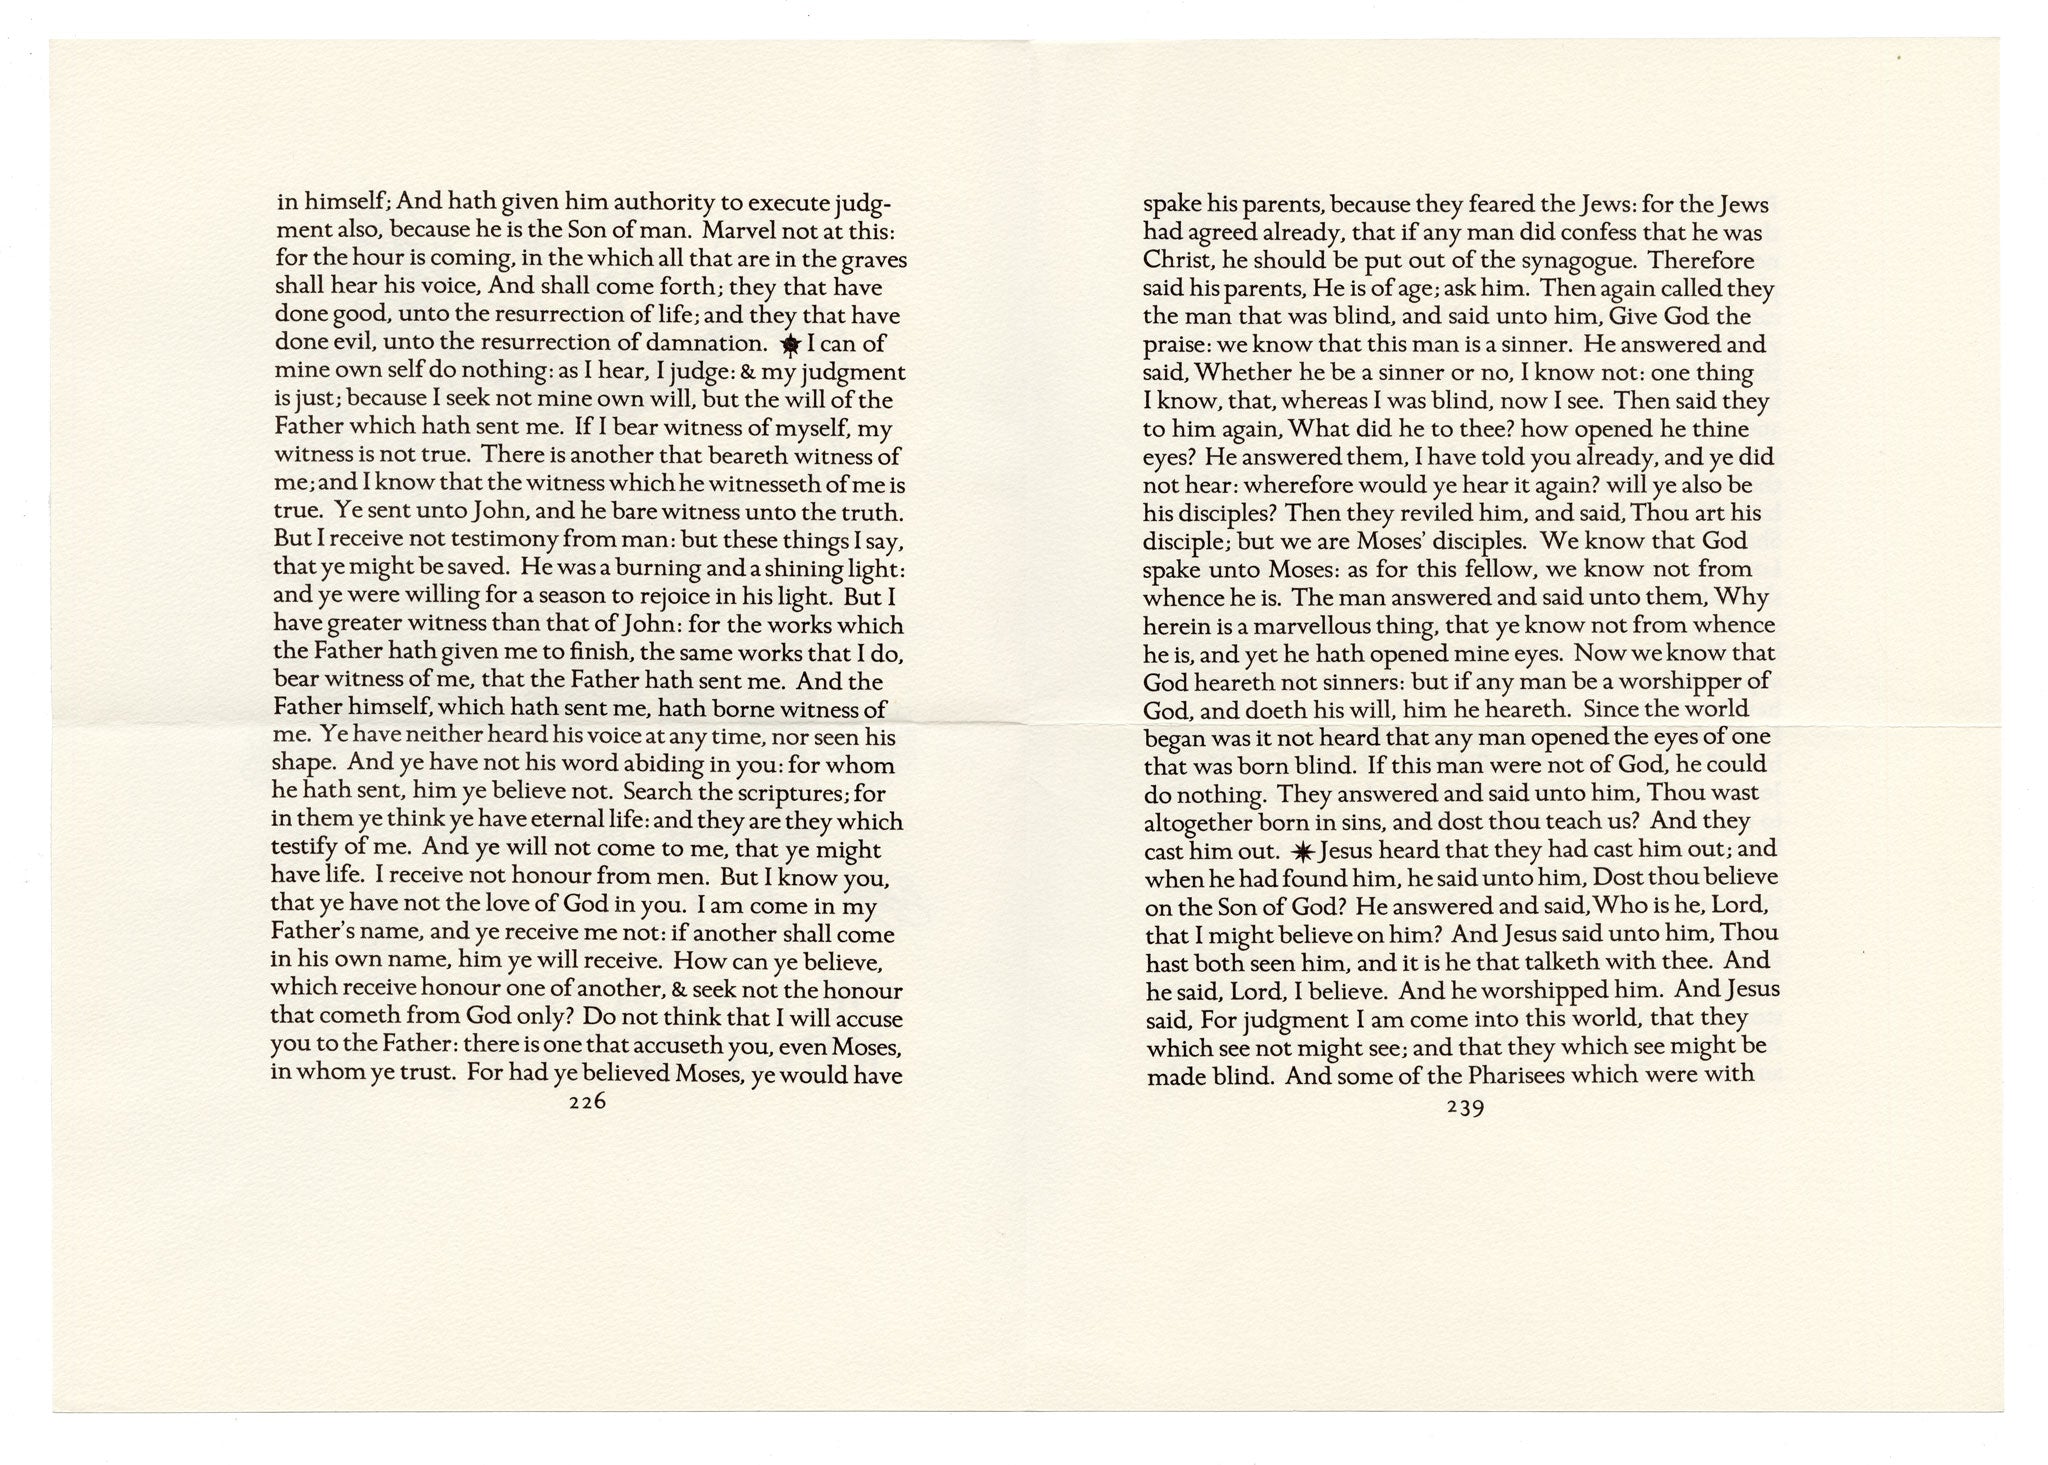 in himself; And hath given him authority to execute judg-
ment also, because he is the Son of man. Marvel not at this:
for the hour is coming, in the which all that are in the graves
shall hear his voice, And shall come forth; they that have
done good, unto the resurrection of life; and they that have
done evil, unto the resurrection of damnation. I can of
mine own self do nothing: as I hear, I judge: & my judgment
is just; because I seek not mine own will, but the will of the
Father which hath sent me. If I bear witness of myself, my
witness is not true. There is another that beareth witness of
me; and I know that the witness which he witnesseth of me is
true. Ye sent unto John, and he bare witness unto the truth.
But I receive not testimony from man: but these things I say,
that ye might be saved. He was a burning and a shining light:
and ye were willing for a season to rejoice in his light. But I
have greater witness than that of John: for the works which
the Father hath given me to finish, the same works that I do,
bear witness of me, that the Father hath sent me. And the
Father himself, which hath sent me, hath borne witness of
me. Ye have neither heard his voice at any time, nor seen his
shape. And ye have not his word abiding in you: for whom
he hath sent, him ye believe not. Search the scriptures; for
in them ye think ye have eternal life: and they are they which
testify of me. And ye will not come to me, that ye might
have life. I receive not honour from men. But I know you,
that ye have not the love of God in you. I am come in my
Father's name, and ye receive me not: if another shall come
in his own name, him ye will receive. How can ye believe,
which receive honour one of another, & seek not the honour
that cometh from God only? Do not think that I will accuse
you to the Father: there is one that accuseth you, even Moses,
in whom ye trust. For had ye believed Moses, ye would have
226
spake his parents, because they feared the Jews: for the Jews
had agreed already, that if any man did confess that he was
Christ, he should be put out of the synagogue. Therefore
said his parents, He is of age; ask him. Then again called they
the man that was blind, and said unto him, Give God the
praise: we know that this man is a sinner. He answered and
said, Whether he be a sinner or no, I know not: one thing
I know, that, whereas I was blind, now I see. Then said they
to him again, What did he to thee? how opened he thine
eyes? He answered them, I have told you already, and ye did
not hear: wherefore would ye hear it again? will ye also be
his disciples? Then they reviled him, and said, Thou art his
disciple; but we are Moses' disciples. We know that God
spake unto Moses: as for this fellow, we know not from
whence he is. The man answered and said unto them, Why
herein is a marvellous thing, that ye know not from whence
he is, and yet he hath opened mine eyes. Now we know that
God heareth not sinners: but if any man be a worshipper of
God, and doeth his will, him he heareth. Since the world
began was it not heard that any man opened the eyes of one
that was born blind. If this man were not of God, he could
do nothing. They answered and said unto him, Thou wast
altogether born in sins, and dost thou teach us? And they
cast him out. Jesus heard that they had cast him out; and
when he had found him, he said unto him, Dost thou believe
on the Son of God? He answered and said, Who is he, Lord,
that I might believe on him? And Jesus said unto him, Thou
hast both seen him, and it is he that talketh with thee. And
he said, Lord, I believe. And he worshipped him. And Jesus
said, For judgment I am come into this world, that they
which see not might see; and that they which see might be
made blind. And some of the Pharisees which were with
239